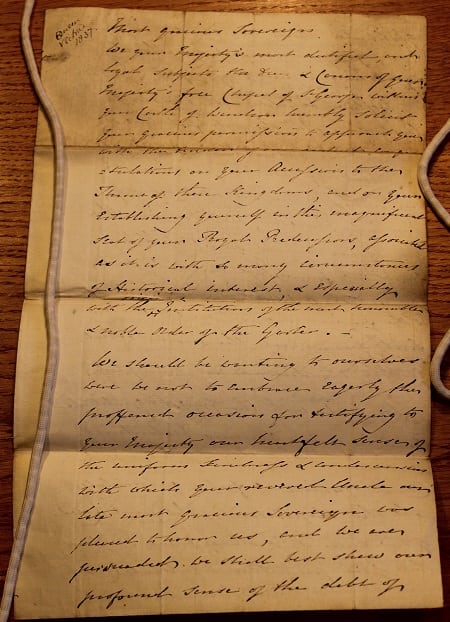 Queen
Victoria
1837.
Most Gracious Sovereign
We your Majesty's most dutiful and
loyal subjects the Dean & Canons of your
Majesty's free Chapel of St George within
your Castle of Windsor humbly solicit
your gracious permission to approach you
with the
on your Accession to the
Throne of these Kingdoms, and on your
establishing yourself in this magnificent
seat of your Royal Predecessors, associated
as it is with so many circumstances
of Historical interest, & especially
with the Institutions of the most honorable
& noble order of the Garter. —
We should be wanting to ourselves
were we not to embrace eagerly this
proffered occasion for testifying to
your Majesty our heartfelt sense of
the uniform kindness & condescension
with which your revered Uncle our
late most gracious Sovereign was
pleased to honor us, and we are
persuaded we shall best shew our
profound sense of the debt of